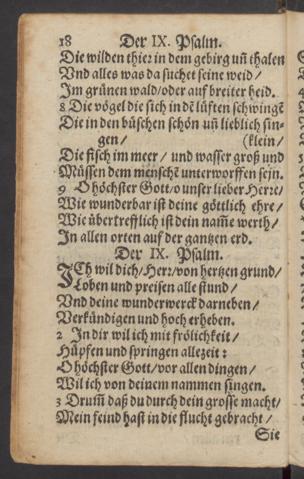 18 Der IX. Psalm.
Die wilden thier in dem gebirg uñ thalen
Vnd alles was da suchet seine weid /
Im grünen wald/oder auf breiter heid.
8 Die vögel die sich in dē lüften schwingē
Die in den büschen schön uñ lieblich sin-
gen / (klein /
Die fisch im meer / und wasser groß und
Müssen dem menschē unterworffen sejn.
9 O höchster Gott/o unser lieber Herre/
Wie wunderbar ist deine göttlich ehre/
Wie übertrefflich ist dein nam̃e werth/
In allen orten auf der gantzen erd.
Der IX. Psalm.
ICh wil dich/Herr/von hertzen grund/
Loben und preisen alle stund/
Vnd deine wunderwerck darneben/
Verkündigen und hoch erheben.
2 In dir wil ich mit frölichkeit/
Hüpfen und springen allezeit:
O höchster Gott/vor allen dingen/
Wil ich von deinem nammen singen.
3 Drum̃ daß du durch dein grosse macht/
Mein feind hast in die flucht gebracht/
Sie